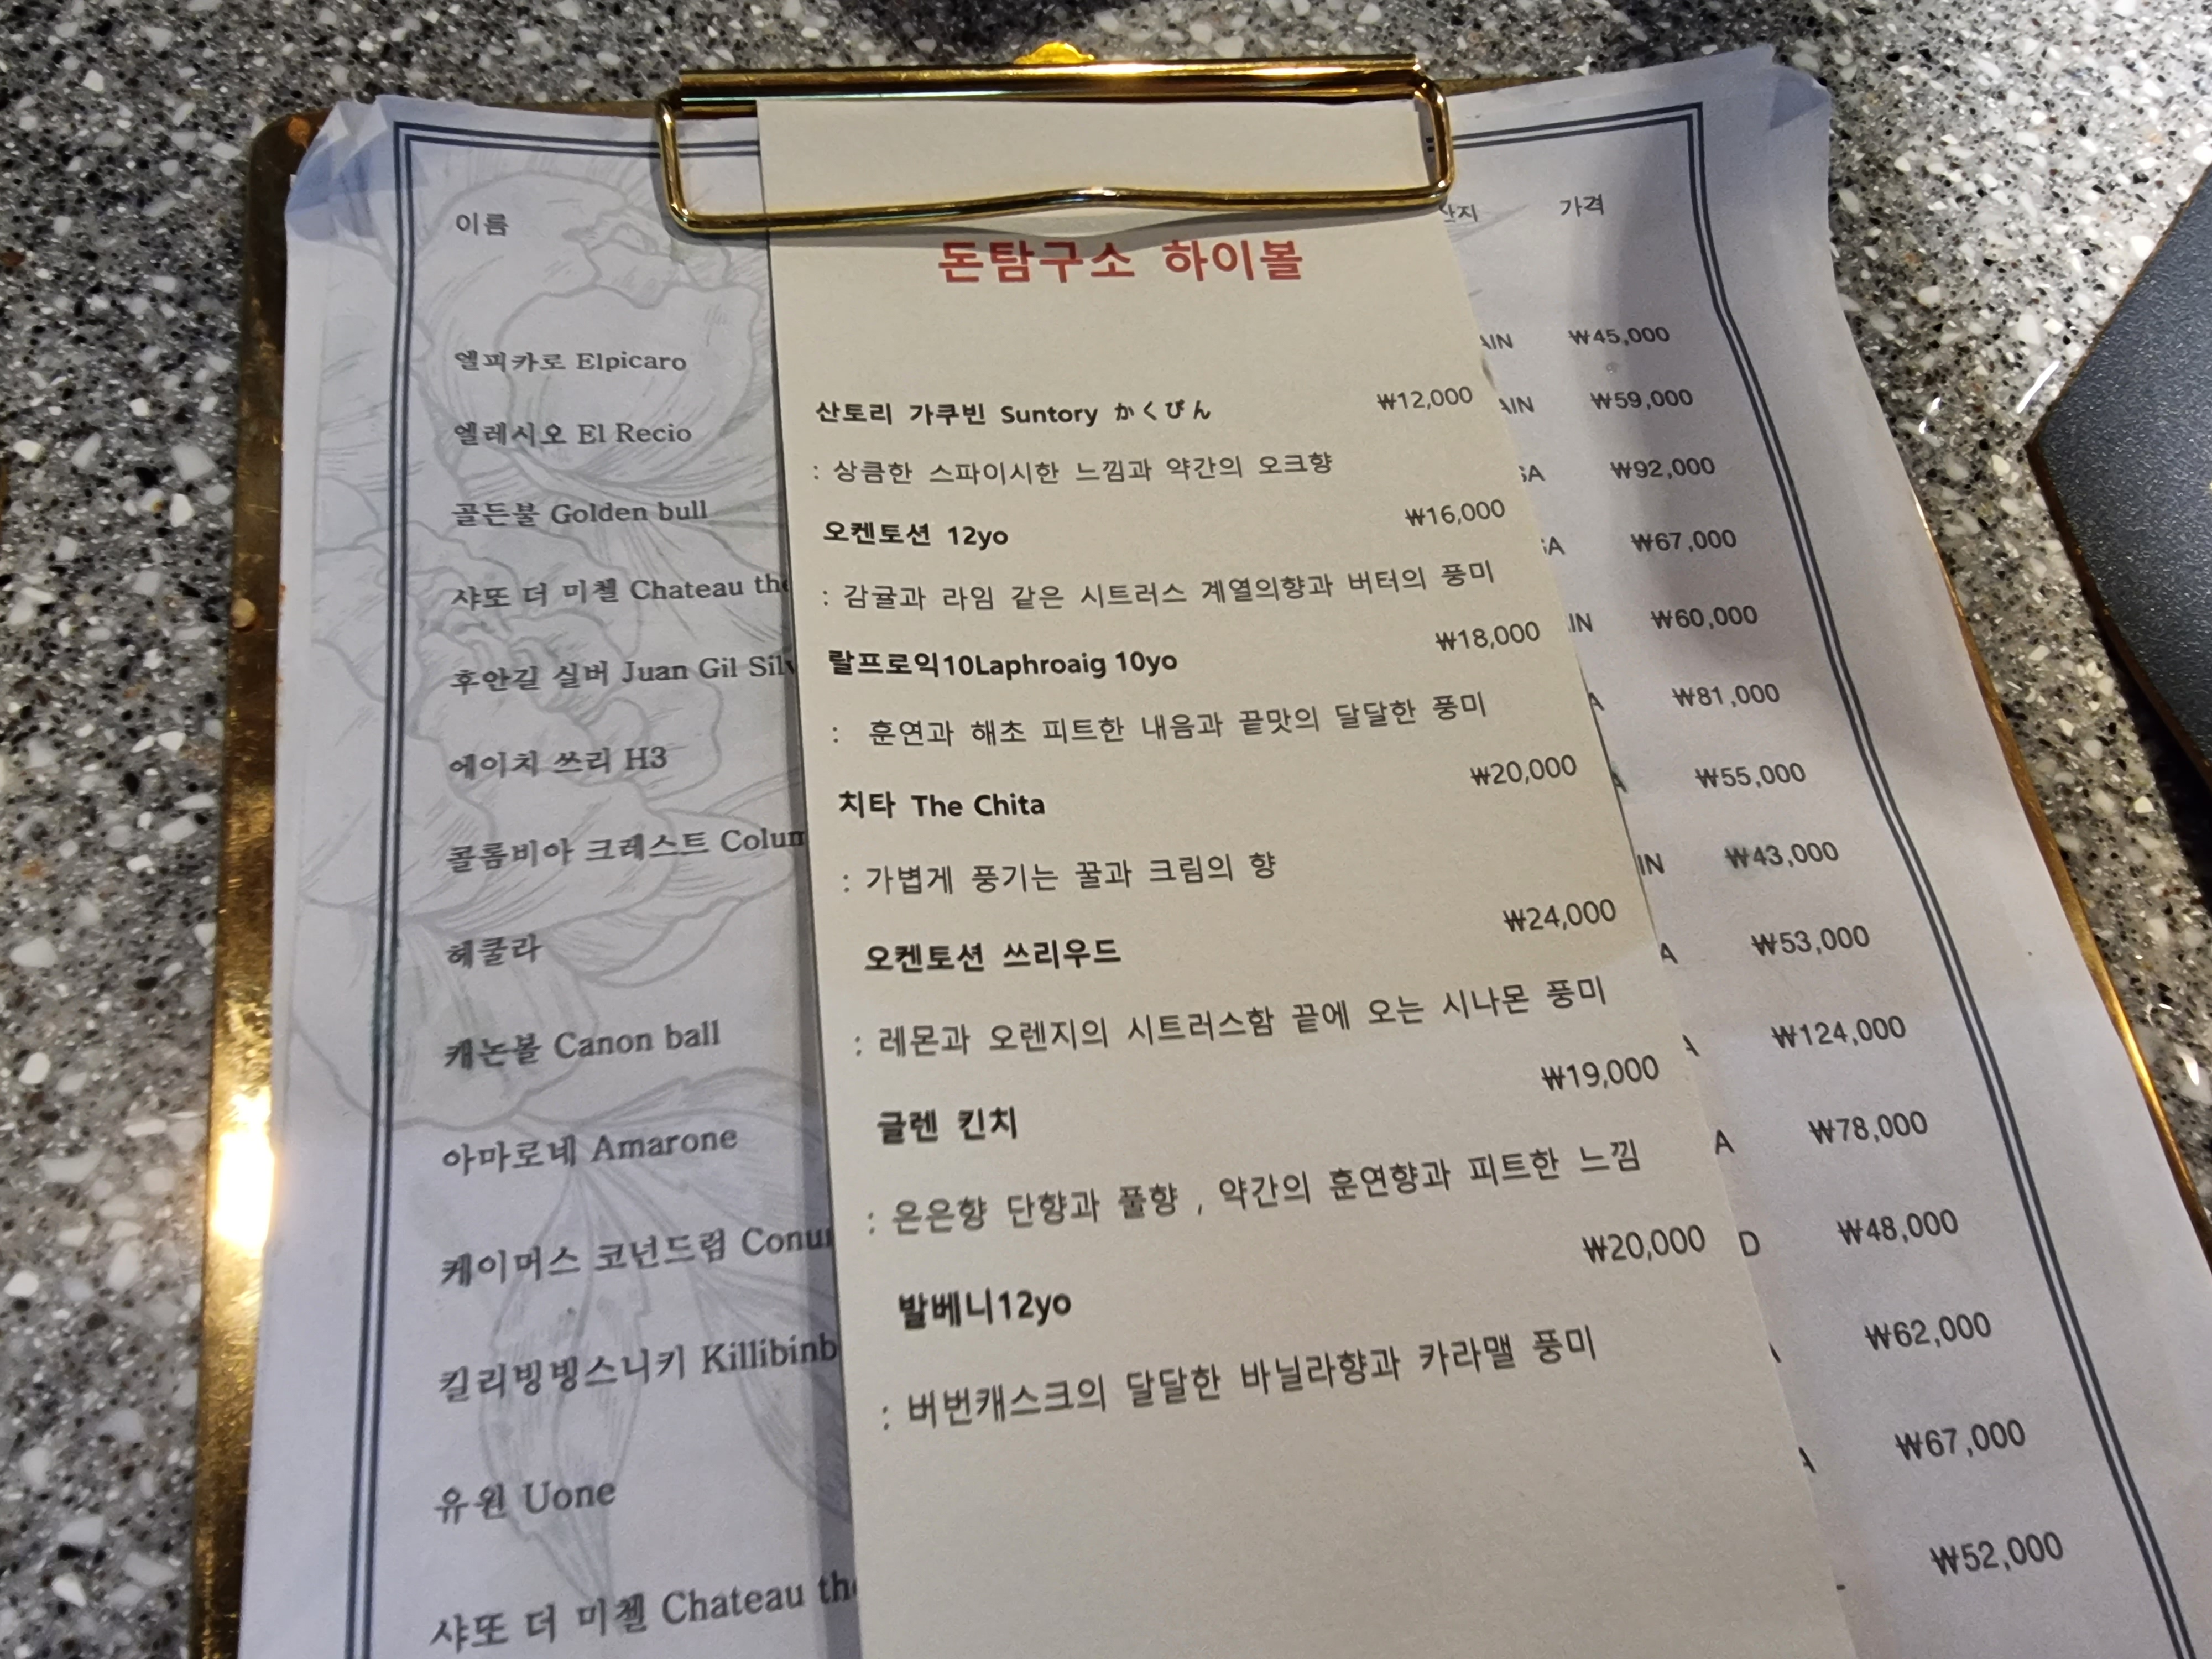 이름
가격
돈탐구소 하이볼
산토리 가쿠빈 Suntory かくびん ₩12,000
: 상큼한 스파이시한 느낌과 약간의 오크향
오켄토션 12yo ₩16,000
: 감귤과 라임 같은 시트러스 계열의향과 버터의 풍미
랄프로익10Laphroaig 10yo ₩18,000
: 훈연과 해초 피트한 내음과 끝맛의 달달한 풍미
치타 The Chita ₩20,000
: 가볍게 풍기는 꿀과 크림의 향
오켄토션 쓰리우드 ₩24,000
: 레몬과 오렌지의 시트러스함 끝에 오는 시나몬 풍미
글렌 킨치 ₩19,000
: 은은향 단향과 풀향 , 약간의 훈연향과 피트한 느낌
발베니12yo ₩20,000
: 버번캐스크의 달달한 바닐라향과 카라맬 풍미
엘피카로 Elpicaro
엘레시오 El Recio
골든불 Golden bull
샤또 더 미첼 Chateau the
후안길 실버 Juan Gil
에이치 쓰리 H3
콜롬비아 크레스트
헤쿨라
캐논볼 Canon ball
아마로네 Amarone
케이머스 코넌드럼
킬리빙빙스니키
유원 Uone
샤또 더 미첼 Chateau the
₩45,000
₩59,000
₩92,000
₩67,000
₩60,000
₩81,000
₩55,000
₩43,000
₩53,000
₩124,000
₩78,000
₩48,000
₩62,000
₩67,000
₩52,000